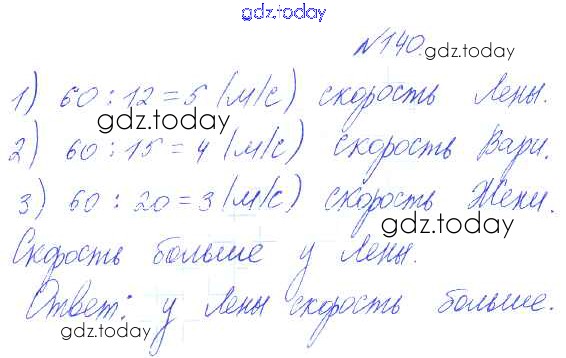 gdz.today
№140.
gdz.today
1) 60 : 12 = 5 (м/с) скорость Лены.
gdz.today
2) 60 : 15 = 4 (м/с) скорость Вари.
3) 60 : 20 = 3 (м/с) скорость Жени.
gdz.today
Скорость больше у Лены.
Ответ: у Лены скорость больше.
gdz.today